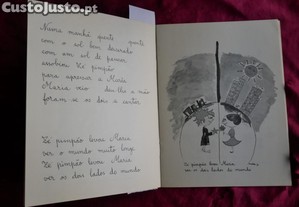 Custojusto.pt
Numa manhã quente quente
com o sol bem dourado
com um sol de
Zé pimpão
para apressar a Maria
Maria deu-lhe a mão
foram os dois a cantar
Zé pimpão levou Maria
ver o mundo muito longe
Zé pimpão levou Maria
ver os dois lados do mundo
Zé pimpão levou Maria
ver os dois lados do mundo